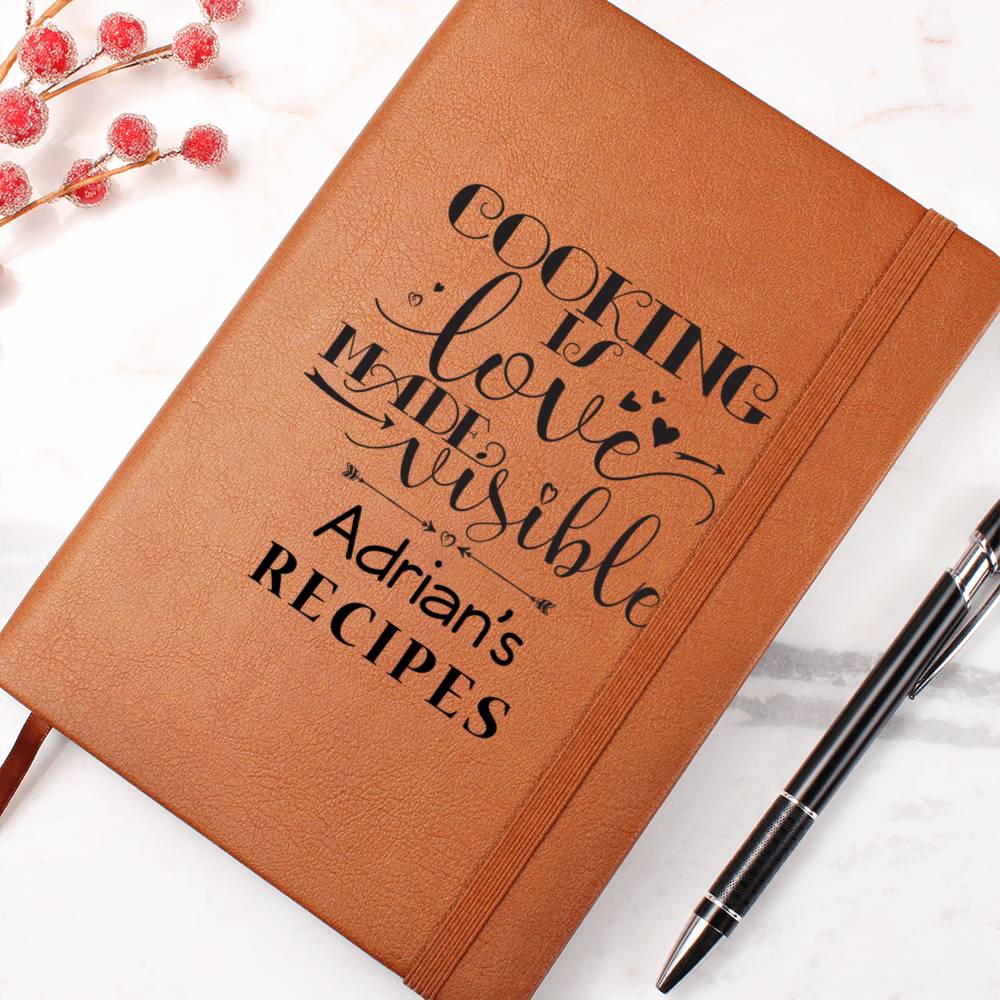 COOKING
IS
love
MADE
visible
Adrian's
RECIPES